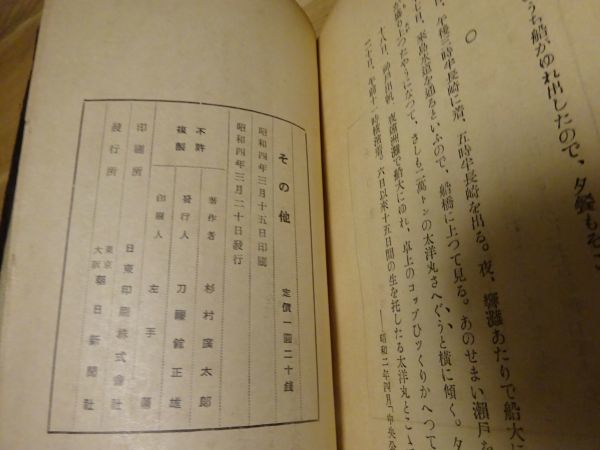 うち船がゆれ出したので、夕餐もそこ
〇
日、午後三時半長崎に着、五時半長崎を出る。夜、響灘あたりで船大に
七日、來島水道を通るといふので、船橋に上つて見る。あのせまい瀬戸を
が盛り上つたやうになつて、さしも二萬トンの太洋丸さへぐうと横に傾く。夕
十八日、神戸出帆、夜遠洲灘で船大にゆれ、卓上のコップひツくりかへつて
二十日、午前十一時横濱着。六日以來十五日間の生を托したる太洋丸とこ
――昭和二年四月「中央公
その他
定價一圓二十錢
昭和四年三月十五日印刷
昭和四年三月二十日發行
不許
複製
著作者 杉村廣太郎
發行人 刀禰館正雄
印刷人 左手
印刷所 日東印刷株式會社
發行所 東京大阪 朝日新聞社